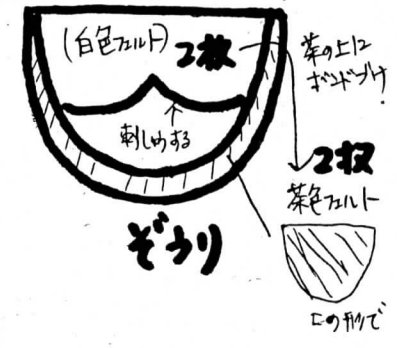 (白色フェルト) 2枚
茶の上に
ボンドづけ
刺しゅうする
2枚
茶色フェルト
ぞうり
この形で